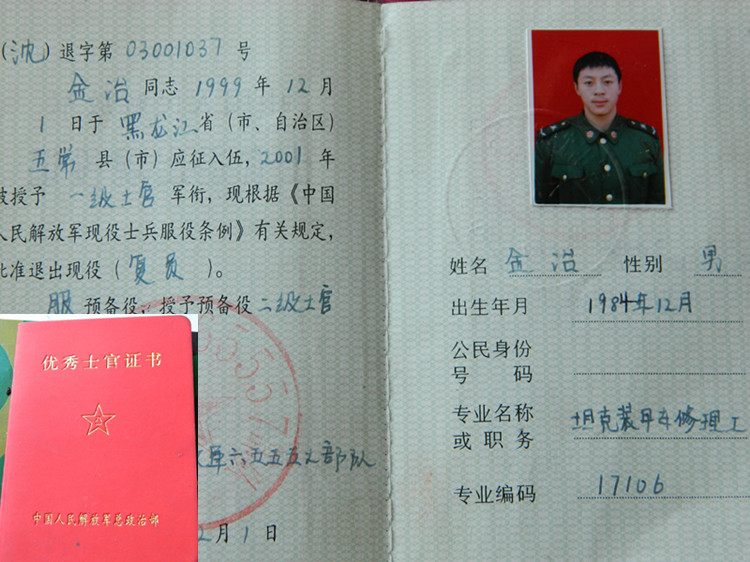 （沈）退字第 03001037 号
金冶 同志 1999 年 12 月
1 日于 黑龙江 省（市、自治区）
五常 县（市）应征入伍，2001 年
被授予 一级士官 军衔，现根据《中国
人民解放军现役士兵服役条例》有关规定，
批准退出现役（复员）。
服 预备役，授予预备役 二级士官
六五五五七部队
2月1日
65557
优秀士官证书
中国人民解放军总政治部
姓名 金冶 性别 男
出生年月 1984年12月
公民身份
号码
专业名称 坦克装甲车修理工
或职务
专业编码 17106